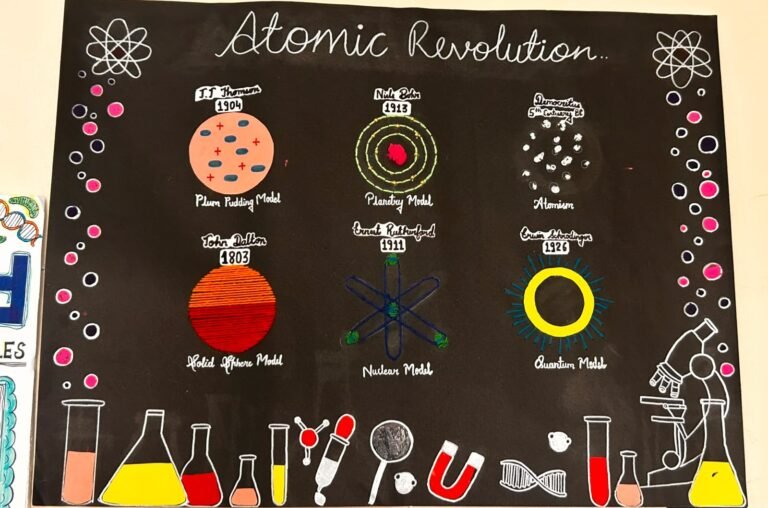 Atomic Revolution..
J.J Thomson
1904
Plum Pudding Model
Niels Bohr
1913
Planetry Model
Democritus
5th Century BC
Atomism
John Dalton
1803
Solid Sphere Model
Ernest Rutherford
1911
Nuclear Model
Erwin Schrodinger
1926
Quantum Model
LES